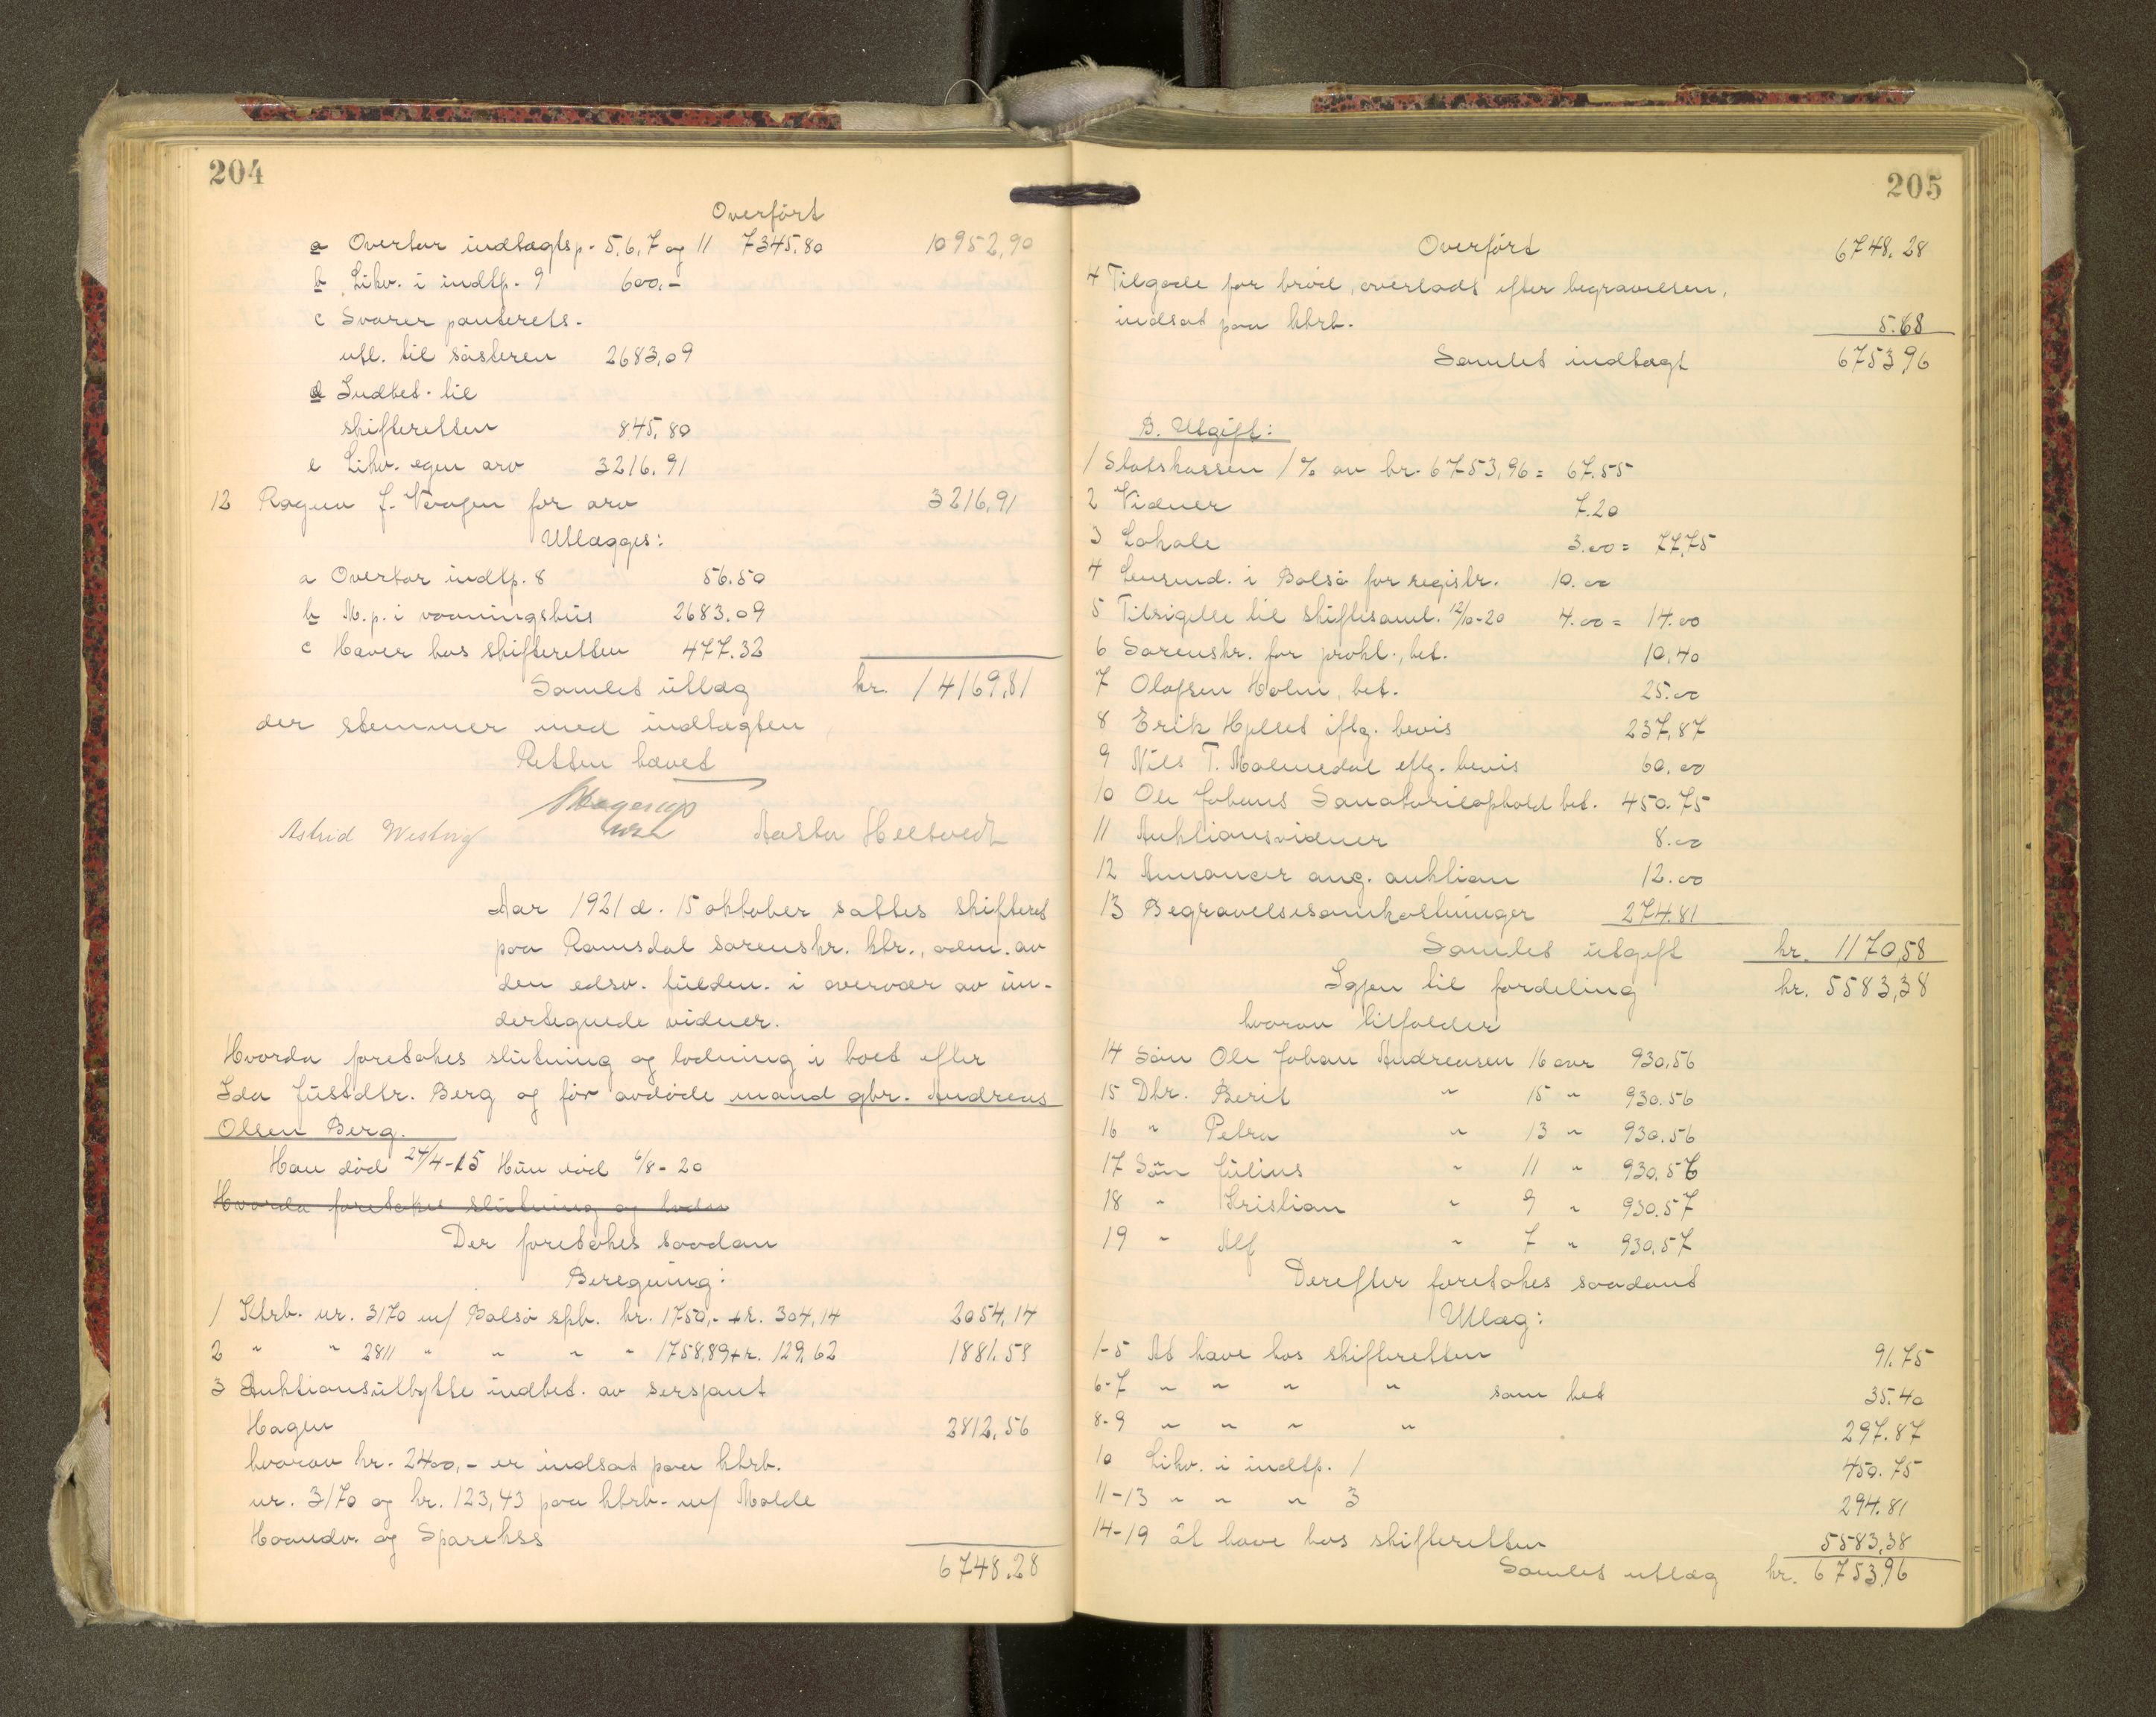 204
Overført
a Overtar indtægtsp. 5, 6, 7 og 11 7345,80 10952,90
b Likv. i indtp. 9 600,-
c Svarer panterets-
utl. til søsteren 2683,09
d Indbet. til
skifteretten 845,80
e Likv. egen arv 3216,91
12 Ragna J. Vaagen for arv 3216,91
Utlægges:
a Overtar indtp. 8 56.50
b M.p. i vaaningshus 2683.09
c Haver hos skifteretten 477.32
Samlet utlæg kr. 14169,81
der stemmer med indtægten
Retten hævet
Astrid Westvig Aasta Heltvedt
Aar 1921 d. 15 oktober sattes skifteret
paa Romsdal sorenskr. ktr., adm. av
den edsv. fuldm. i overvær av un-
dertegnede vidner.
Hvorda foretokes slutning og lodning i boet efter
Ida Justdtr. Berg og før avdøde mand gbr. Andreas
Olsen Berg.
Han død 24/4-15 Hun død 6/8-20
Hvorda foretokes slutning og lodn
Der foretokes saadan
Beregning:
1 Ktrb. nr. 3170 m/ Bolsø spb. kr. 1750,- + r. 304,14 2054,14
2 " " 2811 " " " " 1758,89 + r. 129,62 1881.58
3 Auktionsutbytte indbet. av sersjant
Hagen 2812,56
hvorav kr. 2400,- er indsat paa ktrb.
nr. 3170 og kr. 123,43 paa ktrb. m/ Molde
Haandv. og Sparekss
6748.28
205
Overført 6748.28
4 Tilgode for brød, overlods efter begravelsen,
indsat paa ktrb. 5.68
Samlet indtægt 6753,96
B. Utgift:
1 Statskassen 1% av kr. 6753,96 = 67.55
2 Vidner 7.20
3 Lokale 3.00 = 77,75
4 Lensmd. i Bolsø for registr. 10.00
5 Tilsigelse til skiftesaml. 12/10-20 4.00 = 14.00
6 Sorenskr. for prokl., bet. 10,40
7 Olafsen Holm, bet. 25.00
8 Erik Hjellset iflg. bevis 237,87
9 Nils T. Malmedal eflg. bevis 60.00
10 Ole Johans Sanatorieophold bet. 450.75
11 Auktionsvidner 8.00
12 Annoncer ang. auktion 12.00
13 Begravelsesomkostninger 274.81
Samlet utgift kr. 1170,58
Igjen til fordeling kr. 5583,38
hvorav tilfalder
14 Søn Ole Johan Andreasen 16 aar 930,56
15 Dtr. Berit " 15 " 930.56
16 " Petra " 13 " 930.56
17 Søn Julius " 11 " 930.56
18 " Kristian " 9 " 930.57
19 " Alf " 7 " 930.57
Derefter foretokes saadant
Utlæg:
1-5 At have hos skifteretten 91.75
6-7 " " " " som bet 35.40
8-9 " " " " 297.87
10 Likv. i indtp. 1 450.75
11-13 " " " 3 294.81
14-19 at have hos skifteretten 5583,38
Samlet utlæg kr. 6753,96